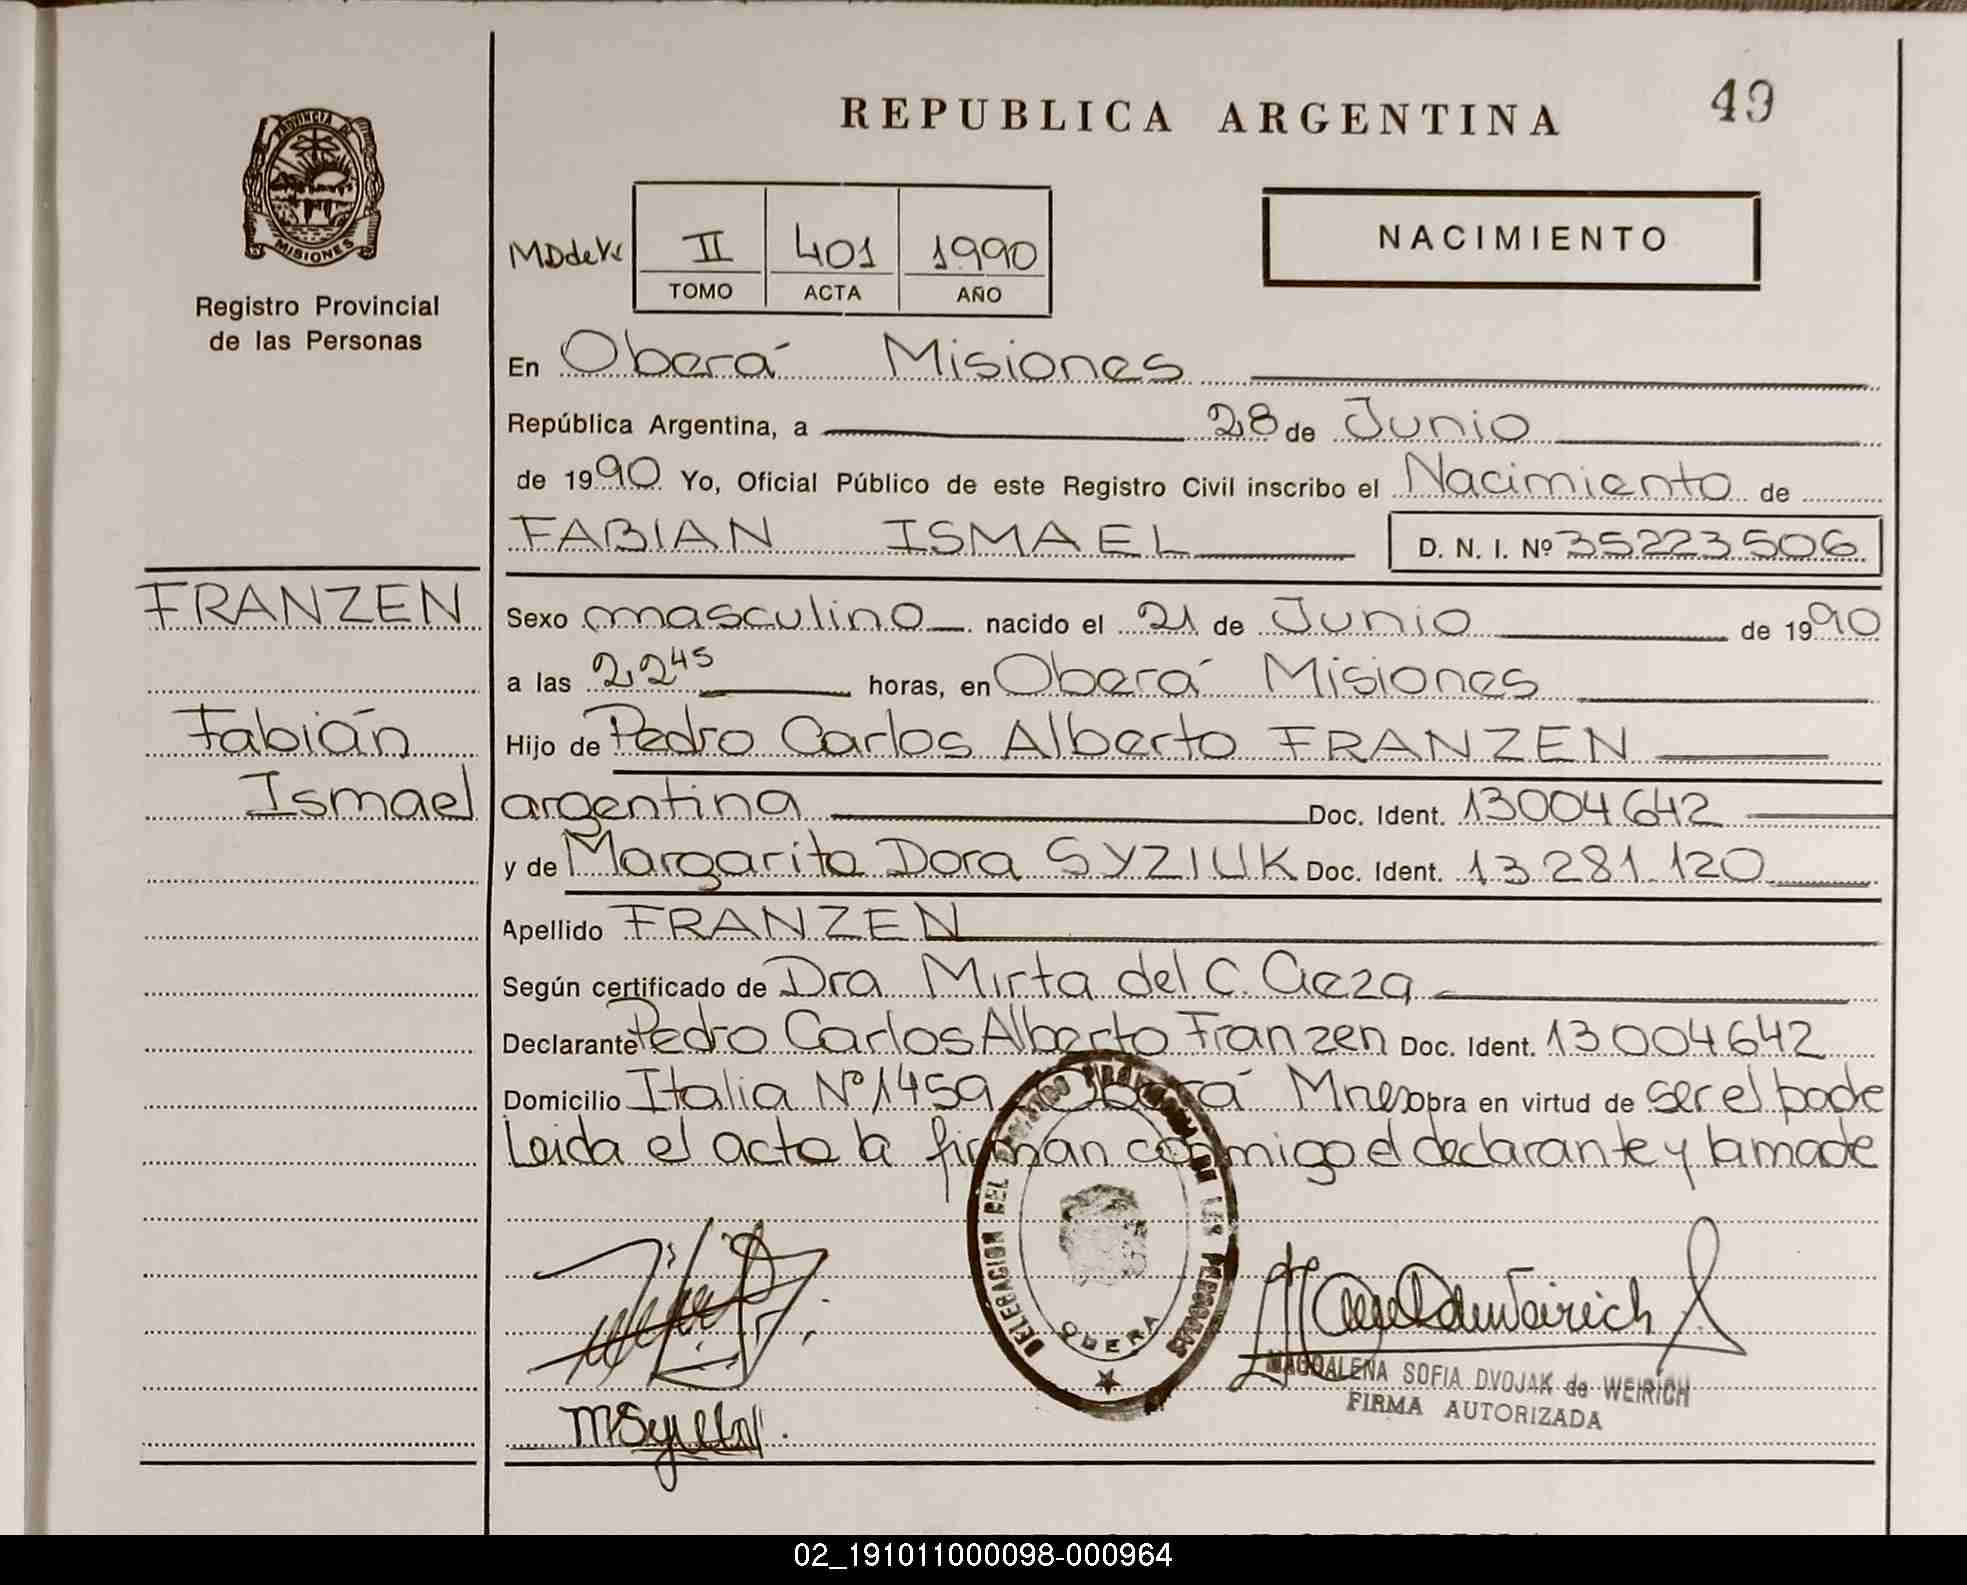 REPUBLICA ARGENTINA
49
PROVINCIA DE
MISIONES
Registro Provincial
de las Personas
II 401 1990
TOMO ACTA AÑO
NACIMIENTO
En Oberá Misiones
República Argentina, a 28 de Junio
de 1990 Yo, Oficial Público de este Registro Civil inscribo el Nacimiento de
FABIAN ISMAEL D. N. I. Nº 35223506
FRANZEN
Fabián
Ismael
Sexo masculino nacido el 21 de Junio de 1990
a las 22 45 horas, en Oberá Misiones
Hijo de Pedro Carlos Alberto FRANZEN
argentina Doc. Ident. 13004642
y de Margarita Dora SYZIUK Doc. Ident. 13 281 120
Apellido FRANZEN
Según certificado de Dra Mirta del C.
Declarante Pedro Carlos Alberto Franzen Doc. Ident. 13004642
Domicilio Italia Nº 1459 Oberá Mnes obra en virtud de ser el padre
Leida el acta la firman conmigo el declarante y la madre
DELEGACION DEL REGISTRO PROVINCIAL DE LAS PERSONAS
OBERA
MAGDALENA SOFIA DVOJAK de WEIRICH
FIRMA AUTORIZADA
02_191011000098-000964